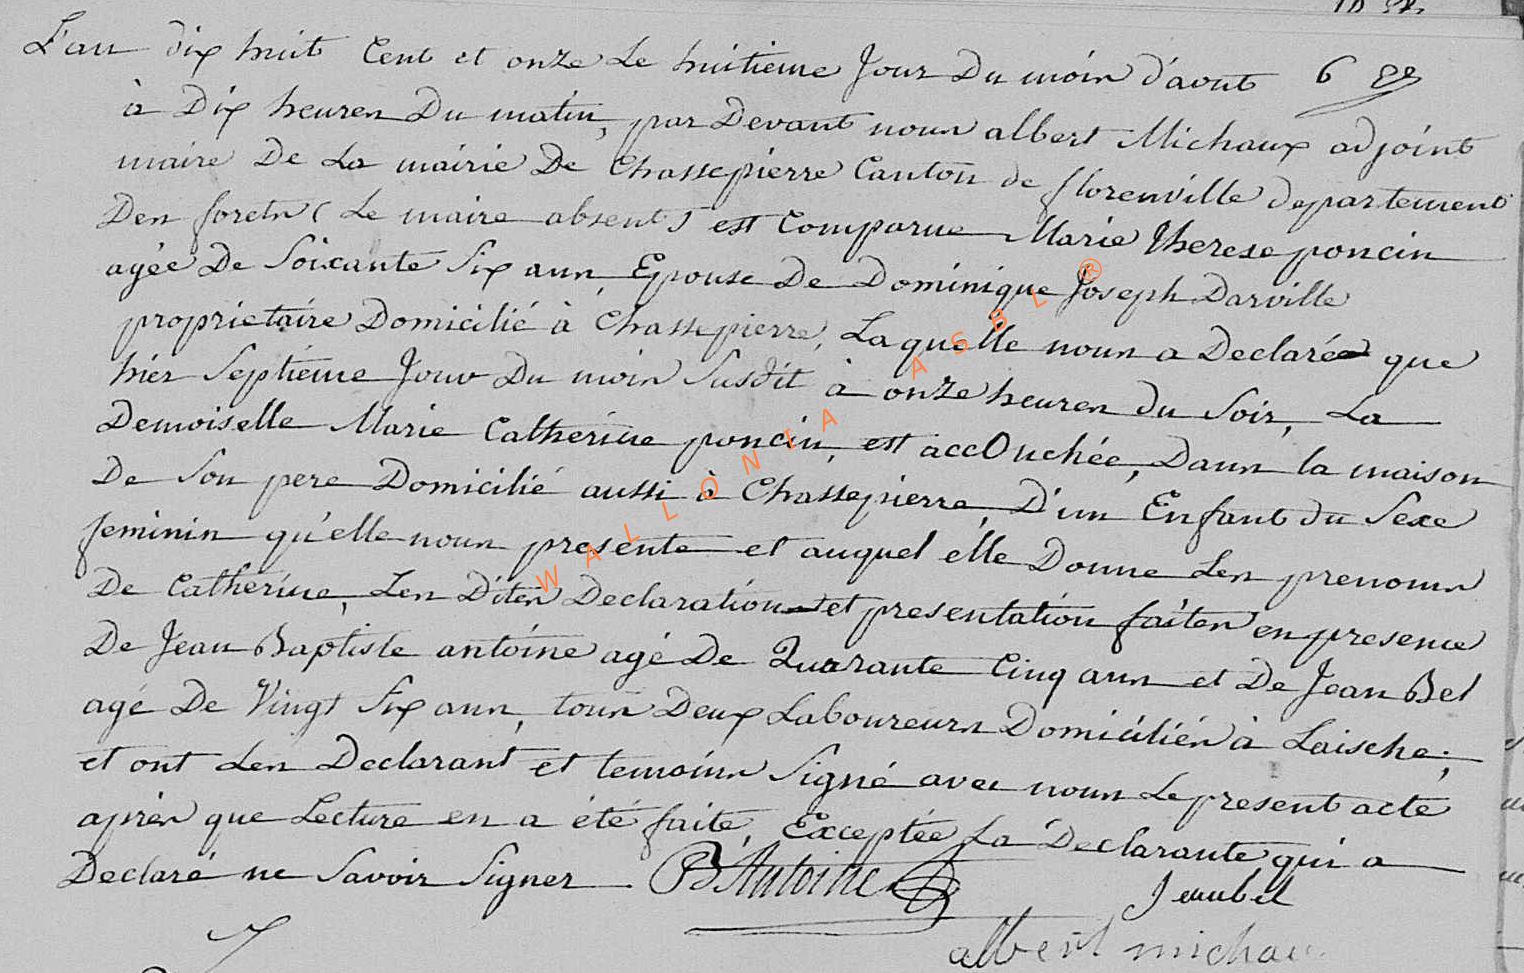 L'an dix huit Cent et onze le huitieme Jour Du mois d'aout 6
à Dix heures Du matin, par Devant nous albert Michaux adjoint
maire De La mairie De Chassepierre Canton de florenville departement
Des forets ( Le maire absent ) est Comparue Marie therese poncin
agée De Soixante Six ans, Epouse De Dominique Joseph Darville
proprietaire Domicilié à Chassepierre, Laquelle nous a Declarée que
hier Septieme Jour Du mois Susdit à onze heures du Soir, La
Demoiselle Marie Catherine poncin, est accOuchée, Dans la maison
De Son pere Domicilié aussi à Chassepierre, D'un Enfant du Sexe
feminin qu'elle nous presente et auquel elle Donne Les prenoms
De Catherine, Les Dites Declaration et presentation faites en presence
De Jean Baptiste antoine agé De Quarante Cinq ans et De Jean Bel
agé De Vingt Six ans, tous Deux Laboureurs Domiciliés à Laiche;
et ont Les Declarant et temoins Signé avec nous Le present acte
après que Lecture en a été faite, Exceptée La Declarante qui a
Declaré ne Savoir Signer. B Antoine
Jeanbel
albert michau
WALLONIA ASBL ®